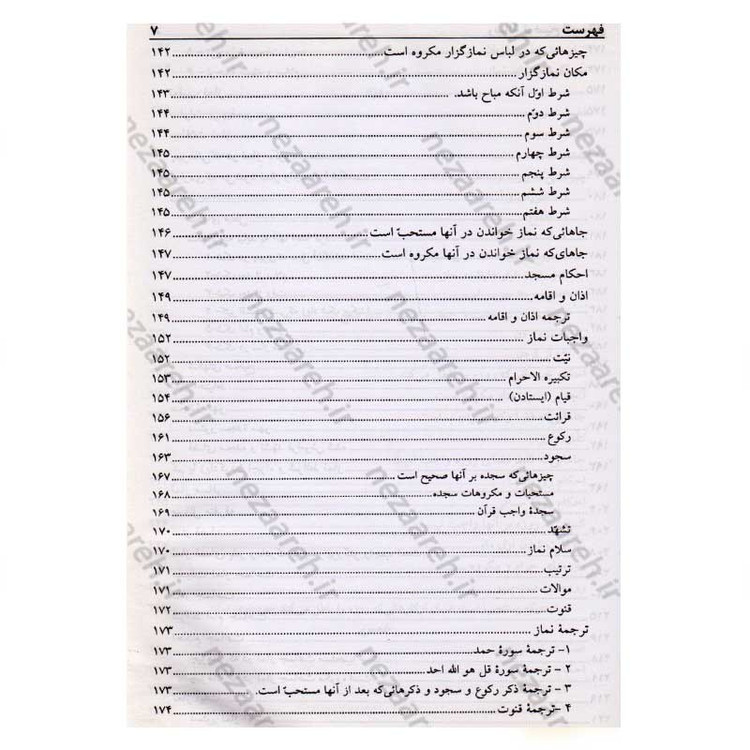 فهرست ۷
چیزهائی‌که در لباس نمازگزار مکروه است ۱۴۲
مکان نمازگزار ۱۴۲
شرط اوّل آنکه مباح باشد. ۱۴۳
شرط دوّم ۱۴۴
شرط سوم ۱۴۴
شرط چهارم ۱۴۵
شرط پنجم ۱۴۵
شرط ششم ۱۴۵
شرط هفتم ۱۴۵
جاهائی‌که نماز خواندن در آنها مستحبّ است ۱۴۶
جاهای‌که نماز خواندن در آنها مکروه است ۱۴۷
احکام مسجد ۱۴۷
اذان و اقامه ۱۴۹
ترجمه اذان و اقامه ۱۴۹
واجبات نماز ۱۵۲
نیّت ۱۵۲
تکبیره الاحرام ۱۵۳
قیام (ایستادن) ۱۵۴
قرائت ۱۵۶
رکوع ۱۶۱
سجود ۱۶۳
چیزهائی‌که سجده بر آنها صحیح است ۱۶۷
مستحبات و مکروهات سجده ۱۶۸
سجدهٔ واجب قرآن ۱۶۹
تشهّد ۱۷۰
سلام نماز ۱۷۰
ترتیب ۱۷۱
موالات ۱۷۱
قنوت ۱۷۲
ترجمهٔ نماز ۱۷۳
۱- ترجمهٔ سورهٔ حمد ۱۷۳
۲ - ترجمهٔ سورهٔ قل هو الله احد ۱۷۳
۳ - ترجمهٔ ذکر رکوع و سجود و ذکرهائی‌که بعد از آنها مستحبّ است. ۱۷۳
۴ -ترجمهٔ قنوت ۱۷۴
nezaareh.ir